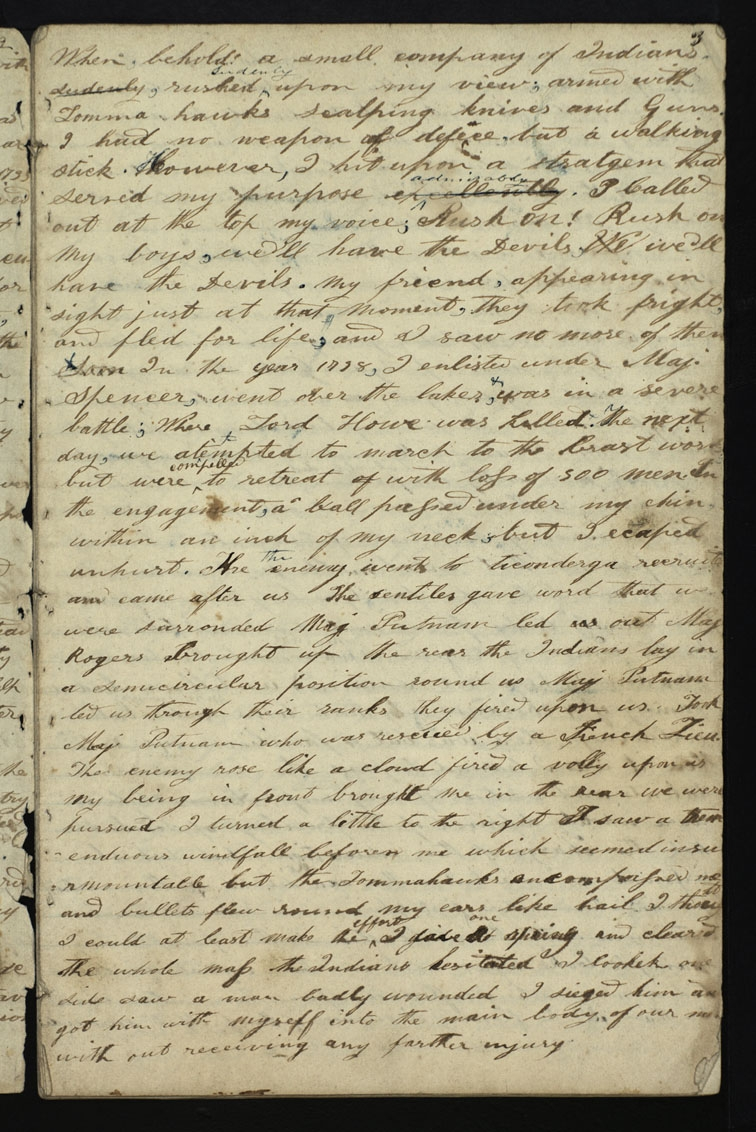 3
When, behold! a small company of Indians
sudenly, rushed, sudenly upon my view; armed with
Tomma hawks scalping knives and Guns.
I had no weapon of defece but a walking
stick. However, I hit upon a stratgem that
served my purpose excellently admirably. I balled
out at the top my voice; Rush on! Rush on
my boys, we'll have the Devils we'll
have the Devils. My friend, appearing in
sight just at that moment, they took fright,
and fled for life, and I saw no more of them
In the year 1738, I enlisted under Maj.
Spencer, went over the lakes, & was in a severe
battle; Where Lord Howe was killed. The next
day, we attempted to march to the Breast work
but were compelled to retreat of with loss of 500 men In
the engagement, a ball passed under my chin
within an inch of my neck; but I ecaped
unhurt. The the enemy went to ticonderga recruit
and came after us The sentiles gave word that we
were surronded Maj Putnam led us out Maj
Rogers Brought up the rear the Indians lay in
a semicircular position round us Maj Putnam
led us through their ranks they fired upon us. Took
Maj. Putnam who was rescued by a French Lieu.
The enemy rose like a cloud fired a volly upon us
my being in front brought me in the rear we were
pursued I turned a little to the right I saw a trem
enduous windfall before me which seemed insu
rmountable but the Tommahawks encompassed me
and bullets flew round my ears like hail I thou
I could at least make the effort I gave one spring and cleared
the whole mass the Indians hesitated I looked one
side saw a man badly wounded I sieged him an
got him with myself into the main body of our men
with out receiving any farther injury